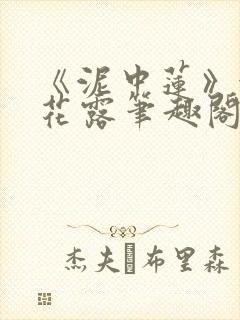 《泥中莲》
花露笔趣阁
杰夫·布里森